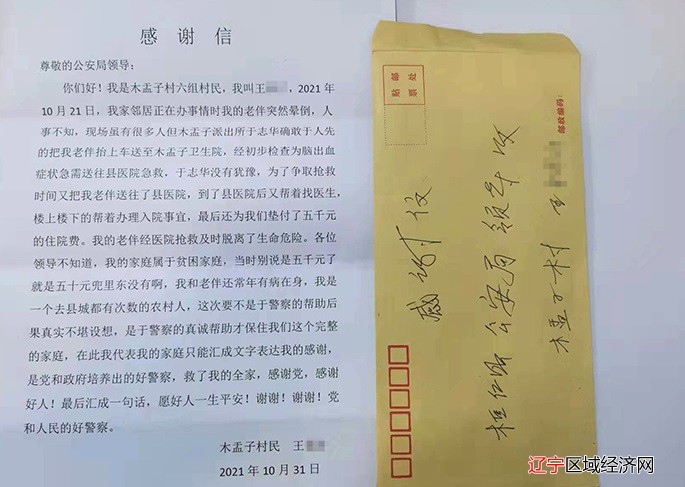 感谢信
尊敬的公安局领导：
你们好！我是木盂子村六组村民，我叫王，2021年
10月21日，我家邻居正在办事情时我的老伴突然晕倒，人
事不知，现场虽有很多人但木盂子派出所于志华确敢于人先
的把我老伴抬上车送至木盂子卫生院，经初步检查为脑出血
症状急需送往县医院急救，于志华没有犹豫，为了争取抢救
时间又把我老伴送往了县医院，到了县医院后又帮着找医生，
楼上楼下的帮着办理入院事宜，最后还为我们垫付了五千元
的住院费。我的老伴经医院抢救及时脱离了生命危险。各位
领导不知道，我的家庭属于贫困家庭，当时别说是五千元了
就是五十元兜里东没有啊，我和老伴还常年有病在身，我是
一个去县城都有次数的农村人，这次要不是于警察的帮助后
果真实不堪设想，是于警察的真诚帮助才保住我们这个完整
的家庭，在此我代表我的家庭只能汇成文字表达我的感谢，
是党和政府培养出的好警察，救了我的全家，感谢党，感谢
好人！最后汇成一句话，愿好人一生平安！谢谢！谢谢！党
和人民的好警察。
木盂子村民 王
2021年10月31日
贴邮
票处
邮政编码：
感谢信
桓仁县公安局领导收
木盂子村 王
辽宁区域经济网